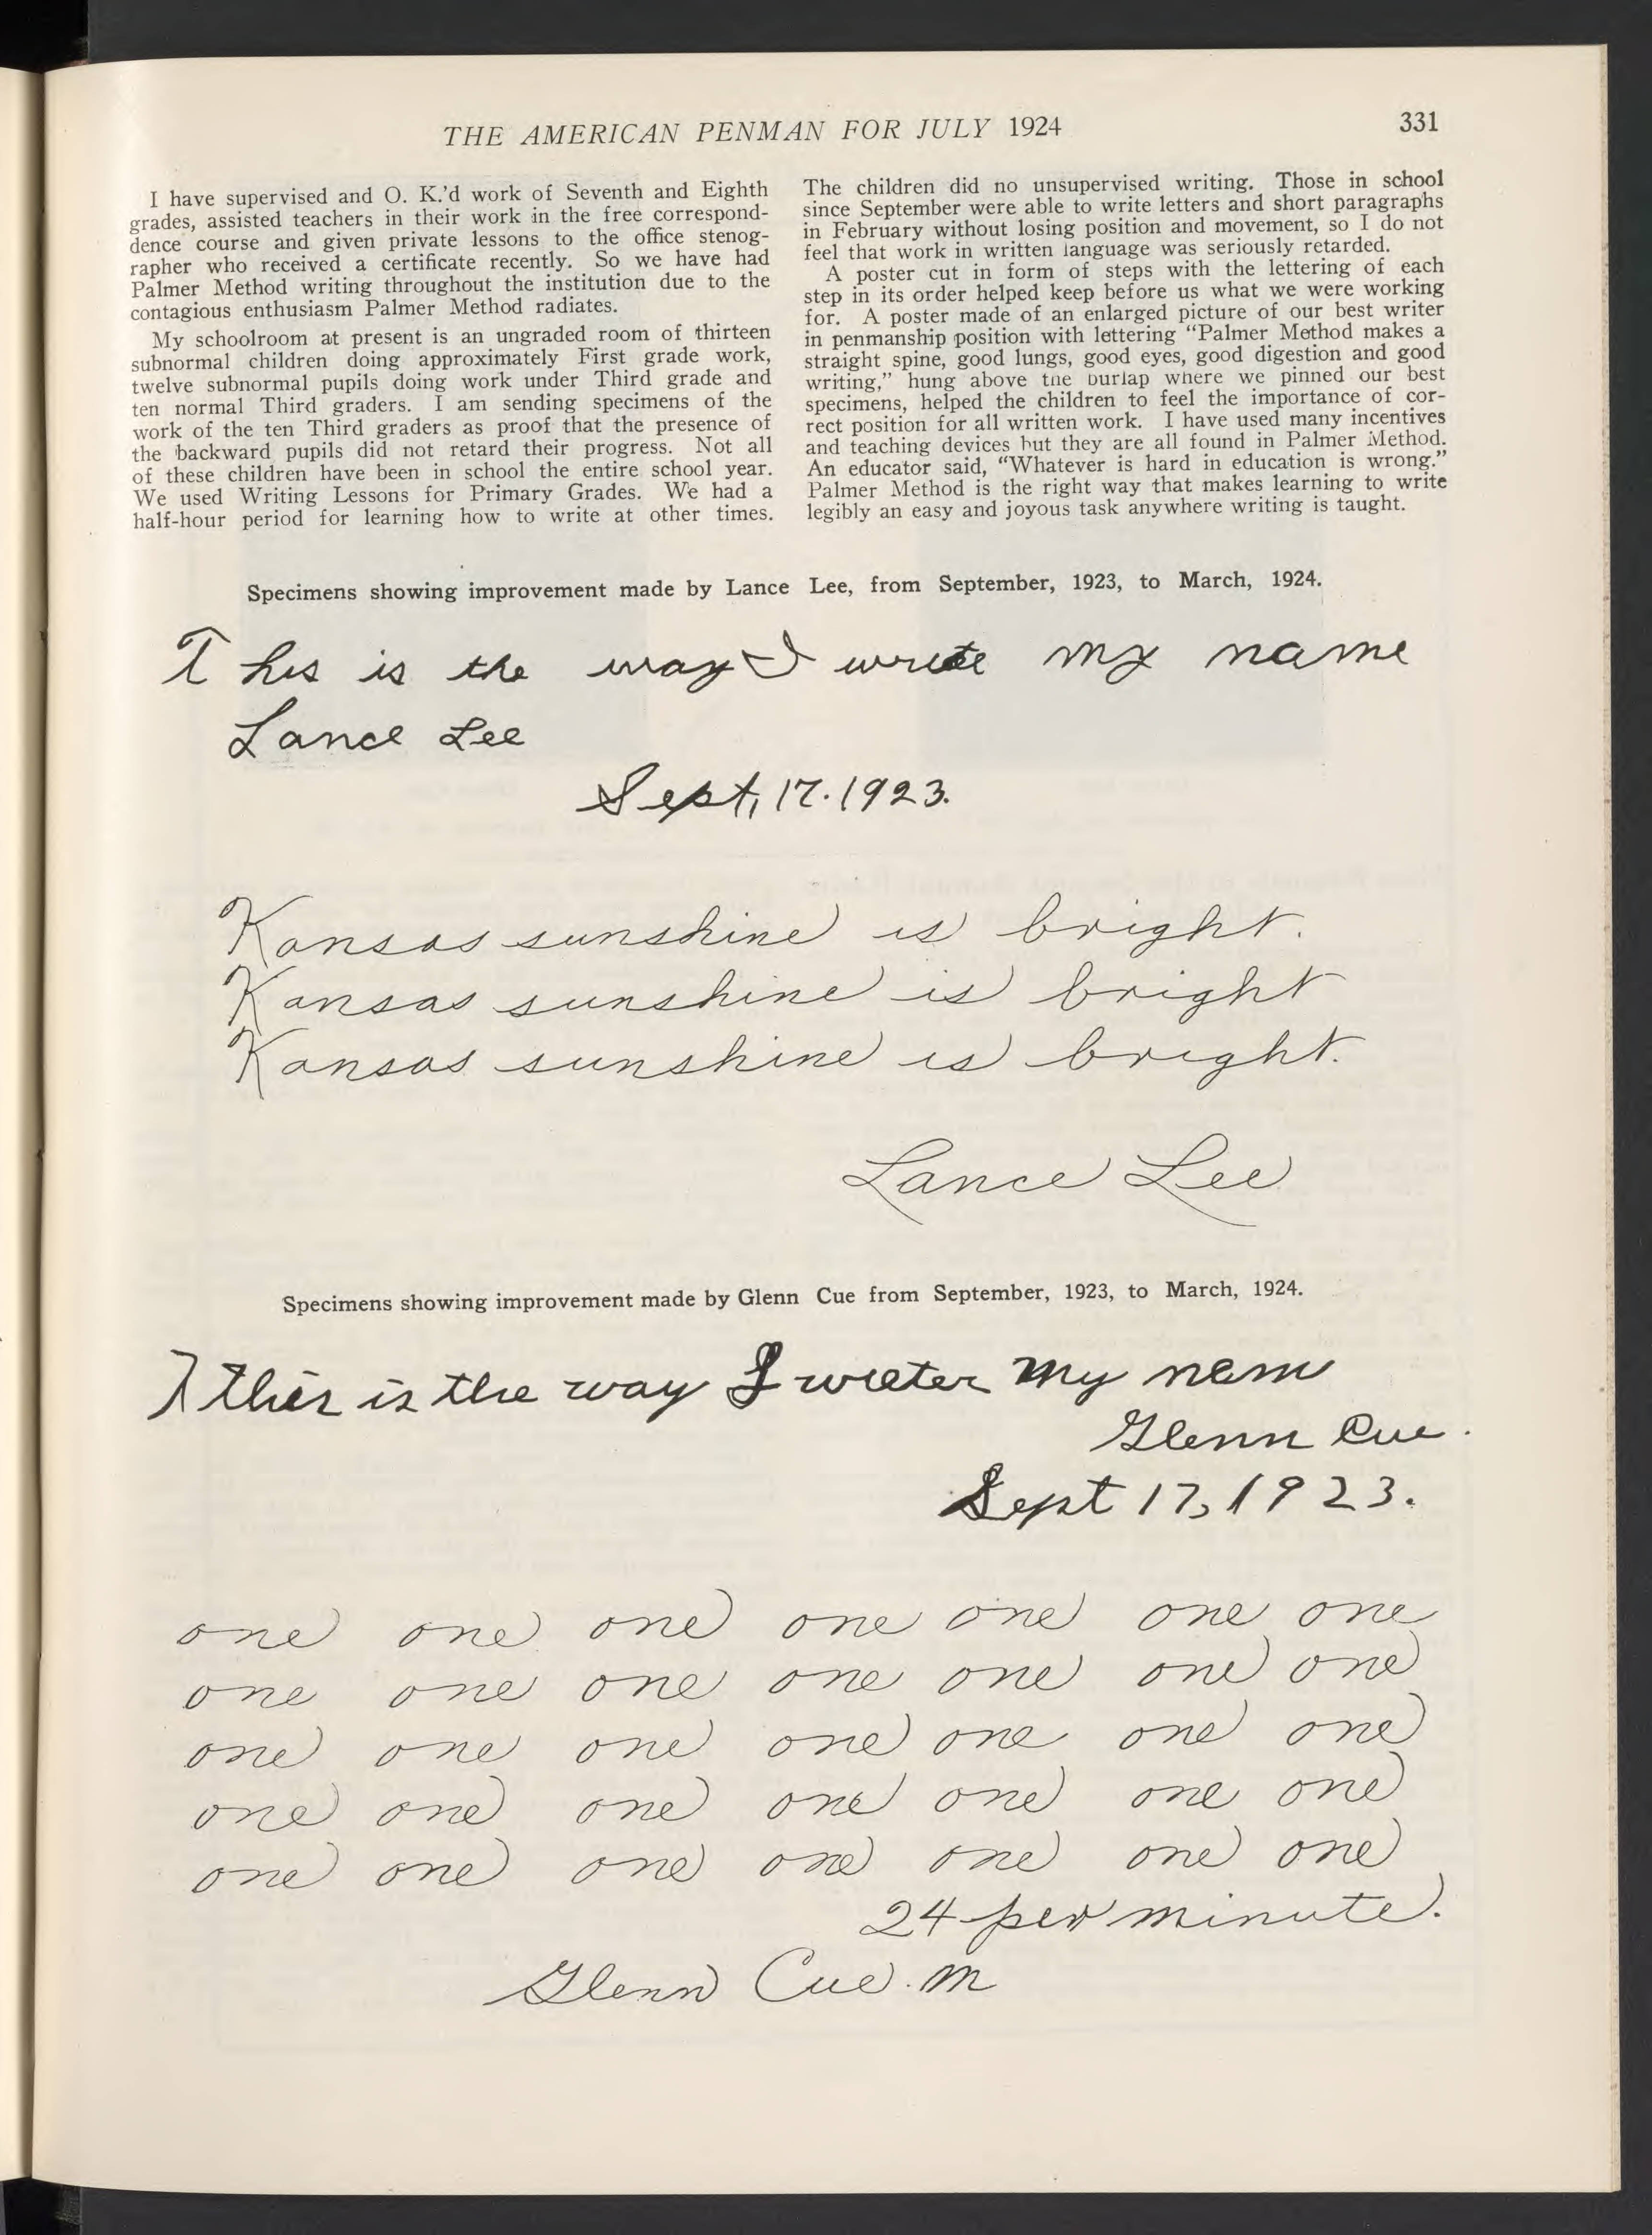 THE AMERICAN PENMAN FOR JULY 1924
331
I have supervised and O. K.'d work of Seventh and Eighth
grades, assisted teachers in their work in the free correspond-
dence course and given private lessons to the office stenog-
rapher who received a certificate recently. So we have had
Palmer Method writing throughout the institution due to the
contagious enthusiasm Palmer Method radiates.
My schoolroom at present is an ungraded room of thirteen
subnormal children doing approximately First grade work,
twelve subnormal pupils doing work under Third grade and
ten normal Third graders. I am sending specimens of the
work of the ten Third graders as proof that the presence of
the backward pupils did not retard their progress. Not all
of these children have been in school the entire school year.
We used Writing Lessons for Primary Grades. We had a
half-hour period for learning how to write at other times.
The children did no unsupervised writing. Those in school
since September were able to write letters and short paragraphs
in February without losing position and movement, so I do not
feel that work in written language was seriously retarded.
A poster cut in form of steps with the lettering of each
step in its order helped keep before us what we were working
for. A poster made of an enlarged picture of our best writer
in penmanship position with lettering "Palmer Method makes a
straight spine, good lungs, good eyes, good digestion and good
writing," hung above the burlap where we pinned our best
specimens, helped the children to feel the importance of cor-
rect position for all written work. I have used many incentives
and teaching devices but they are all found in Palmer Method.
An educator said, "Whatever is hard in education is wrong."
Palmer Method is the right way that makes learning to write
legibly an easy and joyous task anywhere writing is taught.
Specimens showing improvement made by Lance Lee, from September, 1923, to March, 1924.
This is the way I write my name
Lance Lee
Sept, 17. 1923.
Kansas sunshine is bright.
Kansas sunshine is bright
Kansas sunshine is bright.
Lance Lee
Specimens showing improvement made by Glenn Cue from September, 1923, to March, 1924.
T this is the way I wreter my nem
Glenn Cue.
Sept 17, 1923.
one one one one one one one
one one one one one one one
one one one one one one one
one one one one one one one
one one one one one one one
24 per minute.
Glenn Cue. M